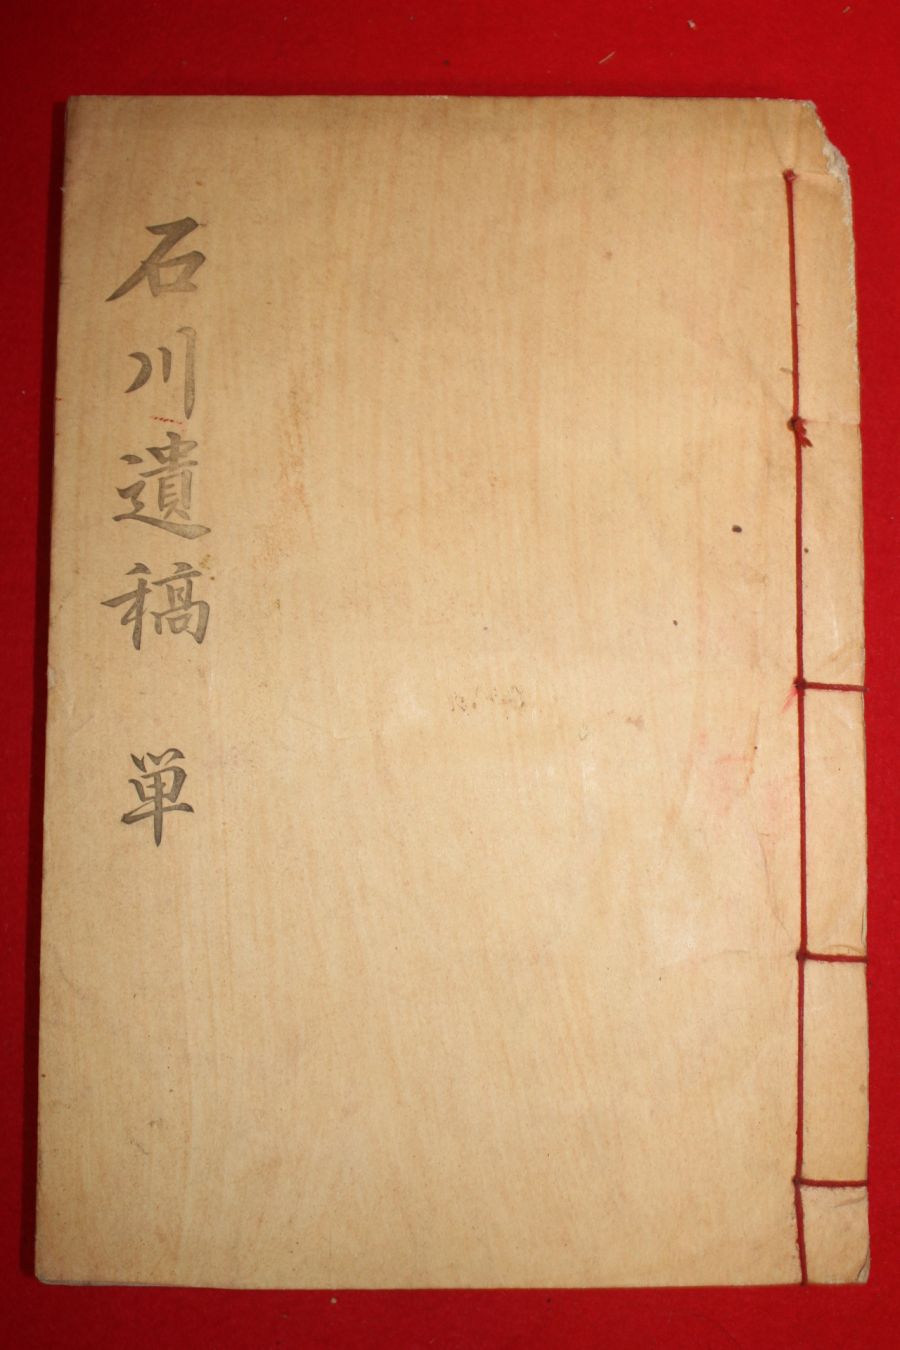 石川遺稿 単